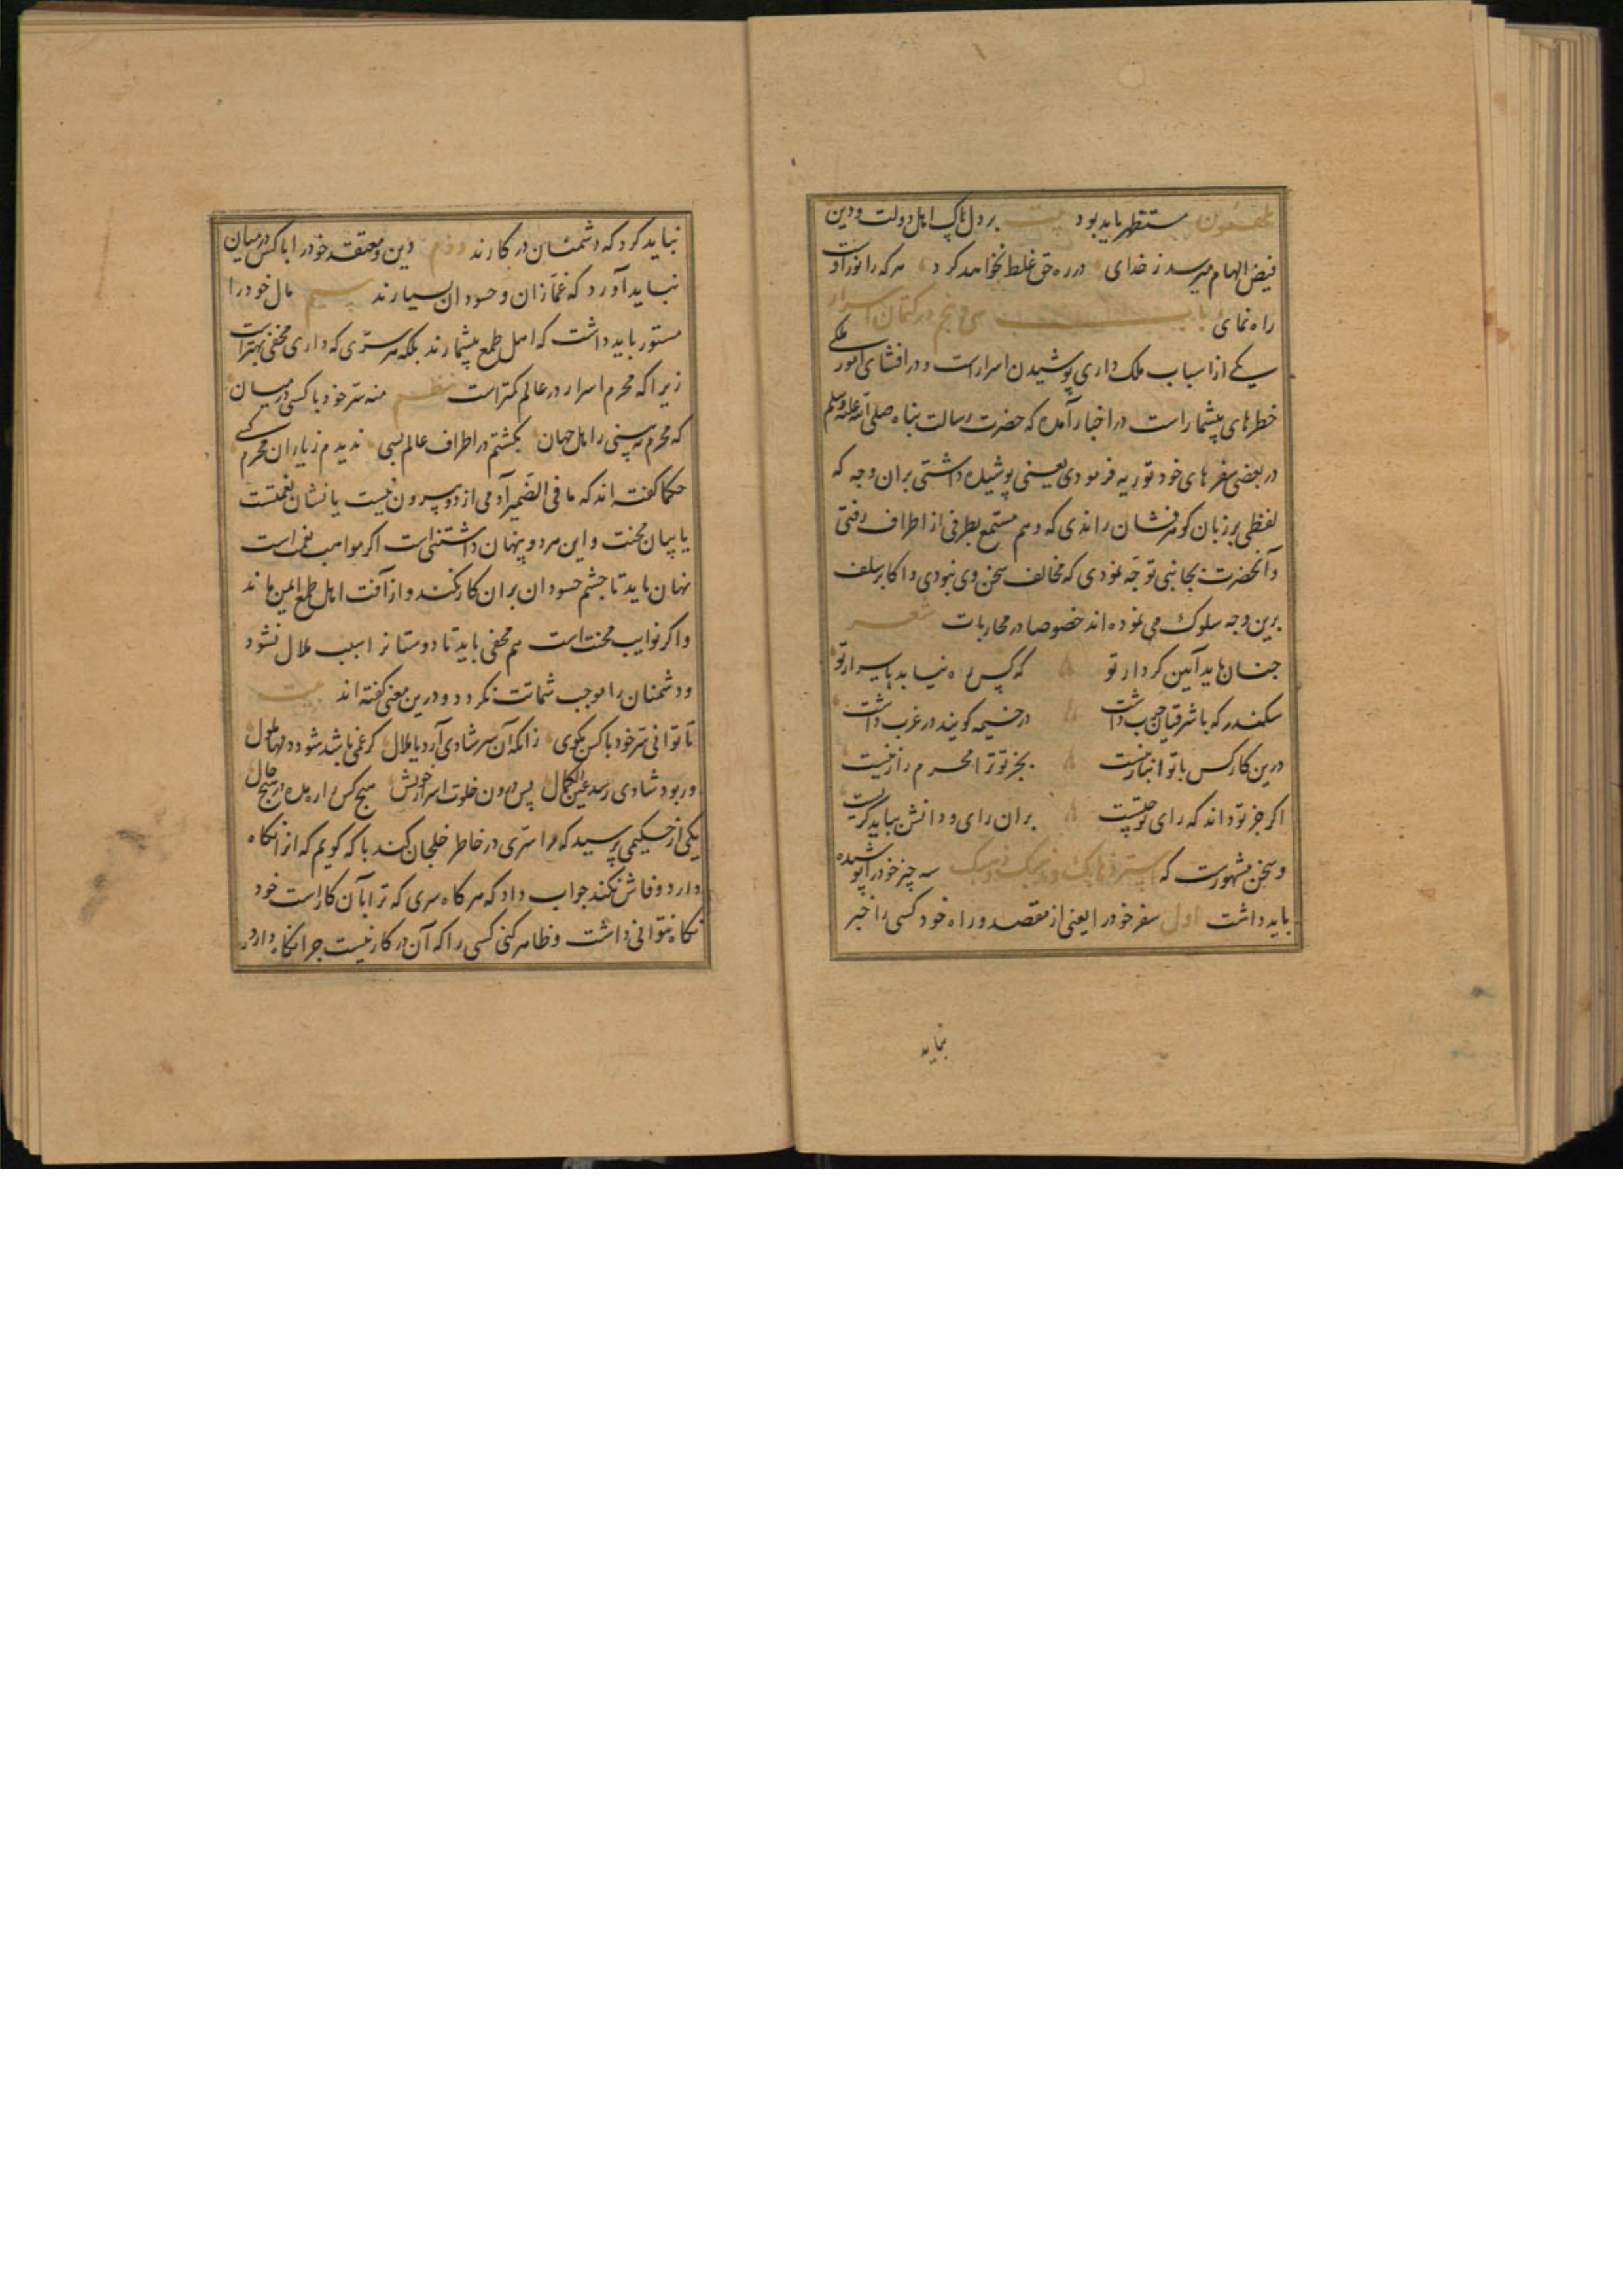 ملهمون مستظهر باید بود بیت بر دل پاک اهل دولت و دین
فیض الهام میرسد ز خدای در ره حق غلط نخواهد کرد هر که را نور اوست
راه نمای باب سی و پنجم در کتمان اسرار
یکی از اسباب ملک داری پوشیدن اسرار است و در افشای امور ملکی
خطرهای بیشمار است در اخبار آمده که حضرت رسالت پناه صلی الله علیه وسلم
در بعضی سفرهای خود توریه فرمودی یعنی پوشیده داشتی بران وجه که
لفظی بر زبان کوهرفشان راندی که وهم مستمع بطرفی از اطراف رفتی
و آنحضرت بجانبی توجه نمودی که مخالف سخن وی نبودی و اکابر سلف
برین وجه سلوک می نموده اند خصوصا در محاربات شعر
چنان باید آیین کردار تو که کس ره نیابد باسرار تو
سکندر که با شرقیان حرب داشت در خیمه کویند در غرب داشت
درین کار کس با تو انباز نیست بجز تو ترا محرم راز نیست
اکر جز تو داند که رای تو چیست بران رای و دانش بباید کریست
و سخن مشهورست که استر ذهابک و ذهبک و مذهبک سه چیز خود را پوشیده
باید داشت اول سفر خود را یعنی از مقصد و راه خود کسی را خبر
نباید
نباید کرد که دشمنان در کارند دوم دین و معتقد خود را با کس در میان
نباید آورد که غمازان و حسودان بسیارند سیم مال خود را
مستور باید داشت که اهل طمع بیشمارند بلکه هر سری که داری مخفی بهتر است
زیرا که محرم اسرار در عالم کمتر است نظم منه سر خود با کسی در میان
که محرم نه بینی ز اهل جهان بکشتم در اطراف عالم بسی ندیدم ز یاران محرم کسی
حکما کفته اند که ما فی الضمیر آدمی از دو بیرون نیست یا نشان نعمتست
یا بیان محنت و این هر دو پنهان داشتنی است اکر مواهب نعم است
نهان باید تا چشم حسودان بران کار نکند و از آفت اهل طمع ایمن ماند
و اکر نوایب محنت است هم مخفی باید تا دوستانرا سبب ملال نشود
و دشمنان را موجب شماتت نکردد و درین معنی کفته اند بیت
تا توانی سر خود با کس مکوی زانکه آن سر شادی آرد یا ملال کر غمی باشد شود دلها ملول
ور بود شادی رسد عین الکمال پس درون خلوت اسرار خویش هیچ کس را ره مده در هیچ حال
یکی از حکیمی پرسید که مرا سری در خاطر خلجان کند با که کویم که انرا نکاه
دارد و فاش نکند جواب داد که هر کاه سری که ترا بآن کار است خود
نکاه نتوانی داشت و ظاهر کنی کسی را که آن در کار نیست چرا نکاه دارد